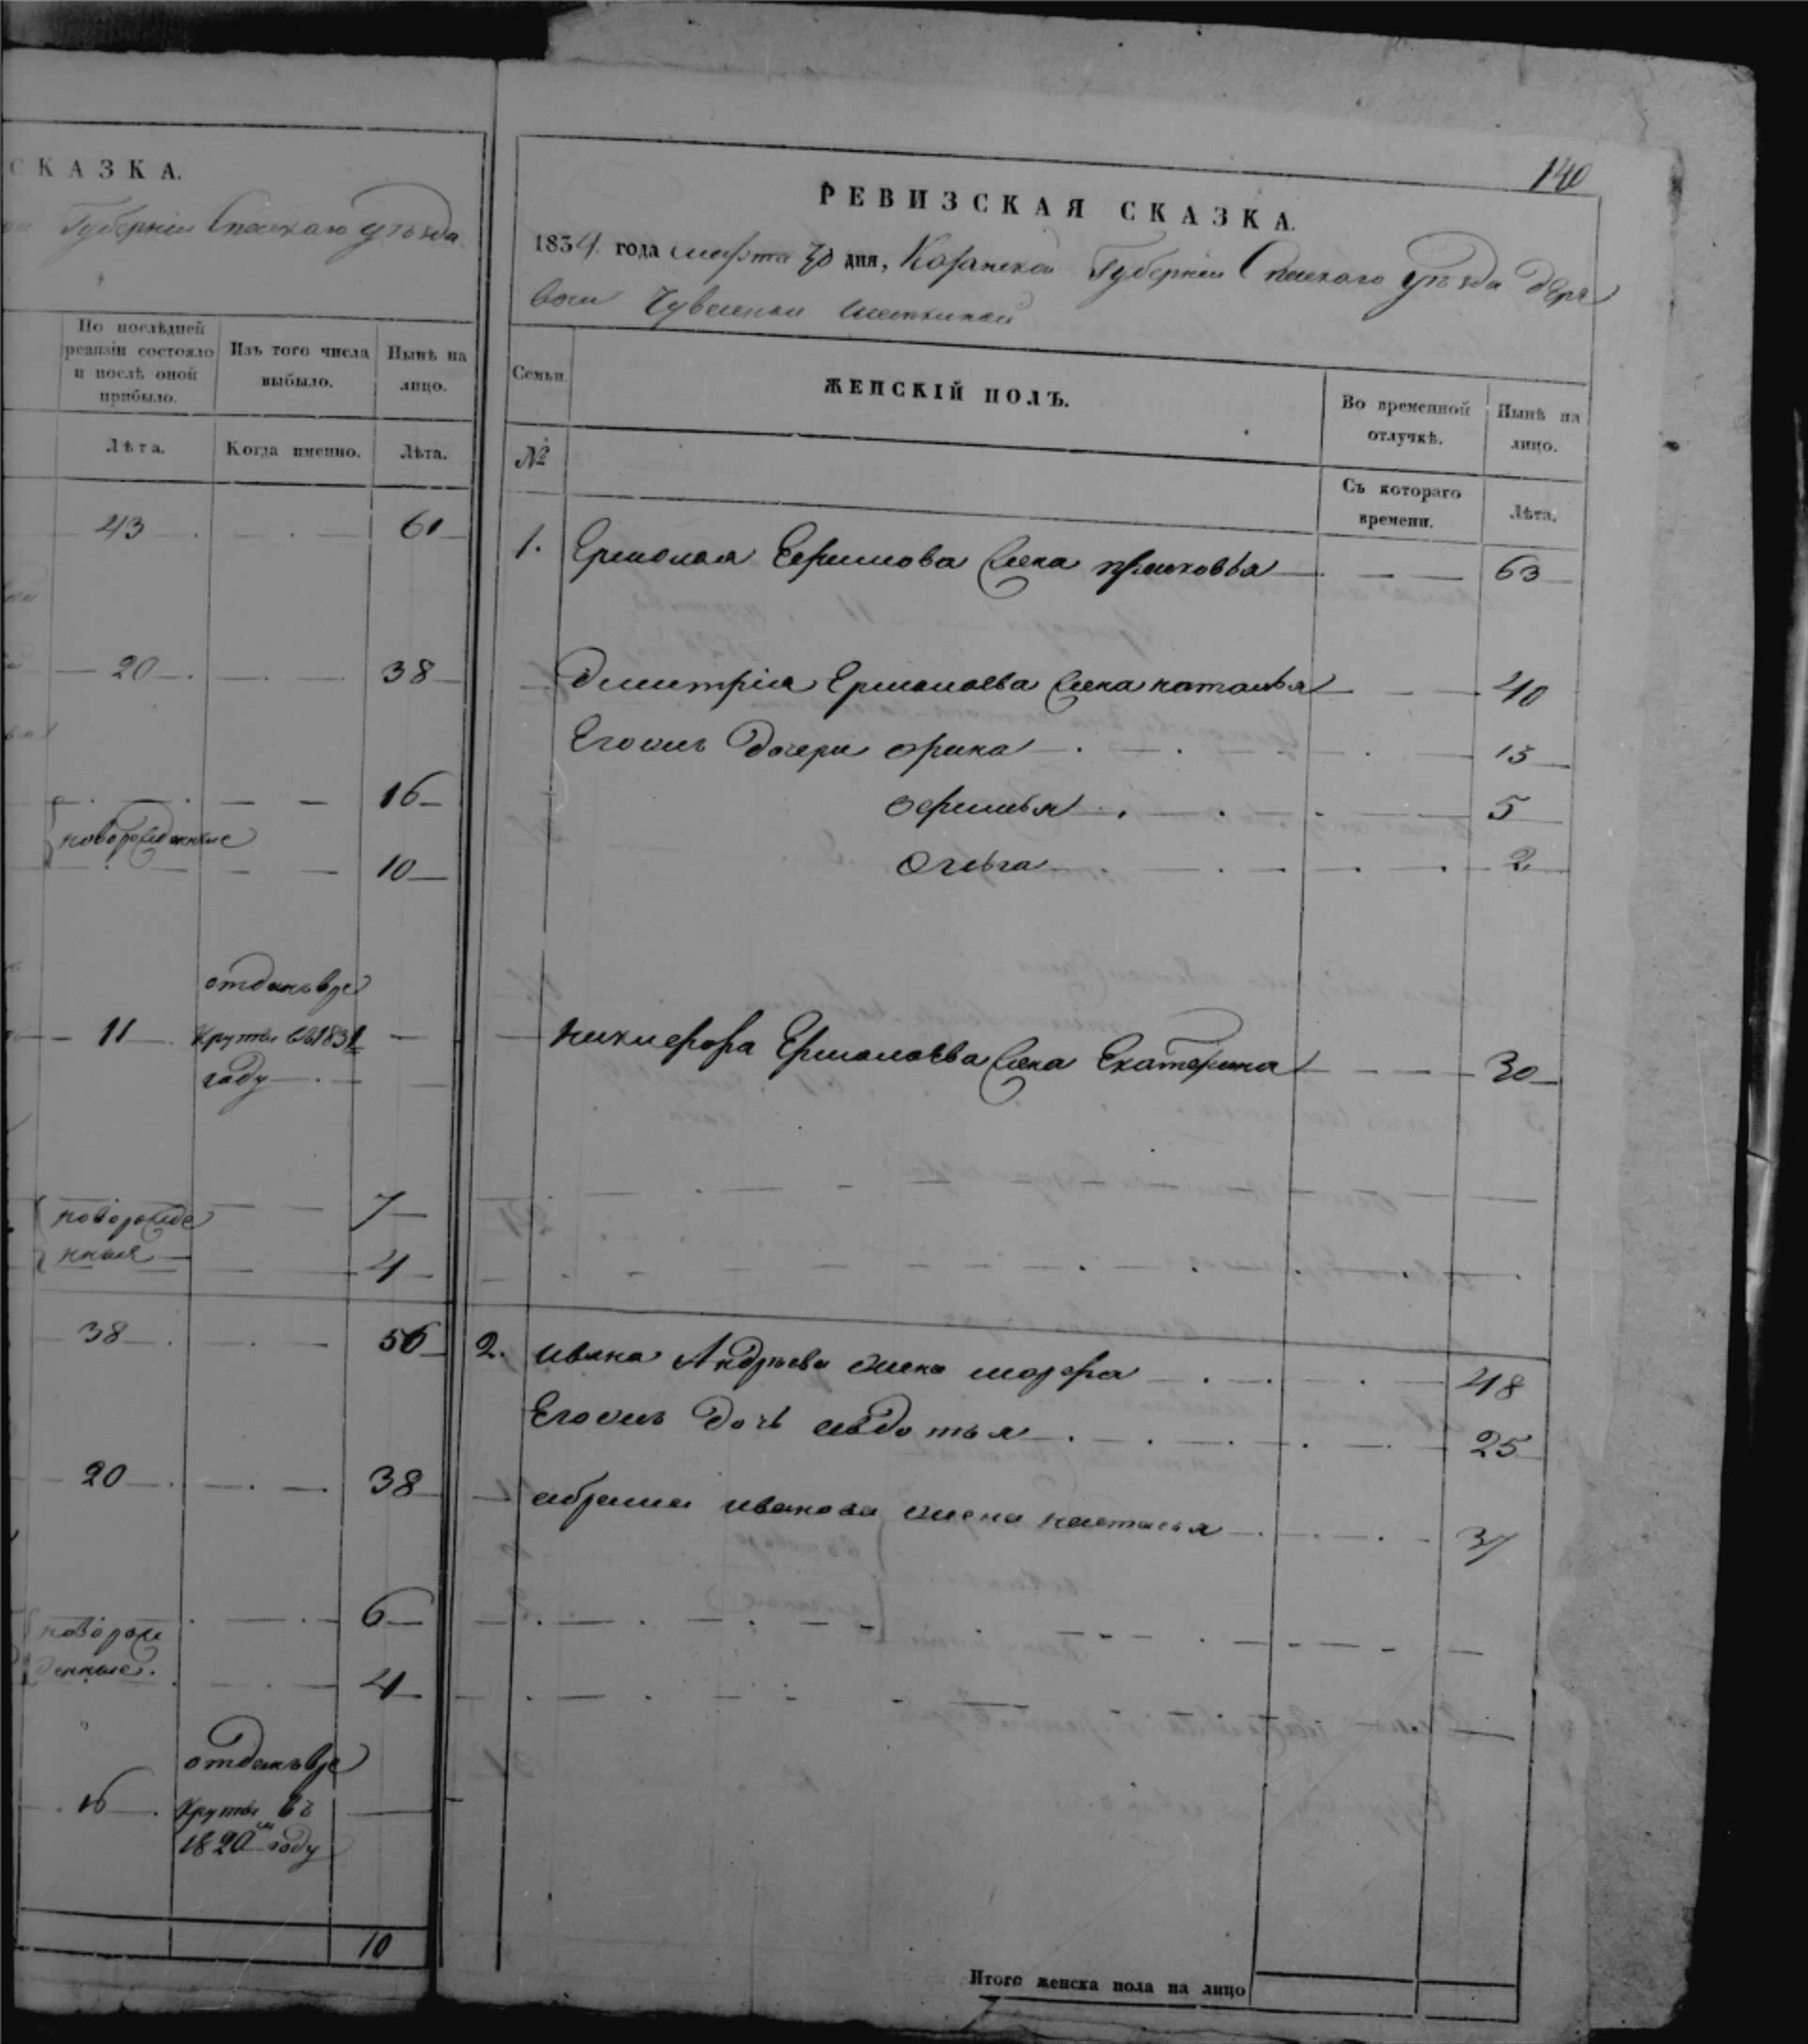 СКАЗКА.
Губерніи Спаскаго уѣзда
По послѣдней ревизіи состояло и послѣ оной прибыло.
Изъ того числа выбыло.
Нынѣ на лицо.
Лѣта.
Когда именно.
Лѣта.
43 61
20 38
16
новорожденные
10
отданъ в ре
11 круты въ 1831
году
7
новорожде
нныя
4
38 56
20 38
6
новорож
денные.
4
отданъ в ре
16 круты въ
1820 м году
10
140
РЕВИЗСКАЯ СКАЗКА.
1834 года марта 30 дня, Казанской Губерніи Спаскаго уѣзда дере
вни
Семьи.
ЖЕНСКІЙ ПОЛЪ.
Во временной отлучкѣ.
Нынѣ на лицо.
№
Съ котораго времени.
Лѣта.
1. Ермолая Ефимова жена прасковья 63
Димитрія Ермолаева жена наталья 40
Егожъ дочери орина 15
офимья 5
Ольга 2
никифора Ермолаева жена Екатерина 30
2. ивана Андрѣева жена марфа 48
Егожъ дочь авдотья 25
абрама иванова жена настасья 37
Итого женска пола на лицо